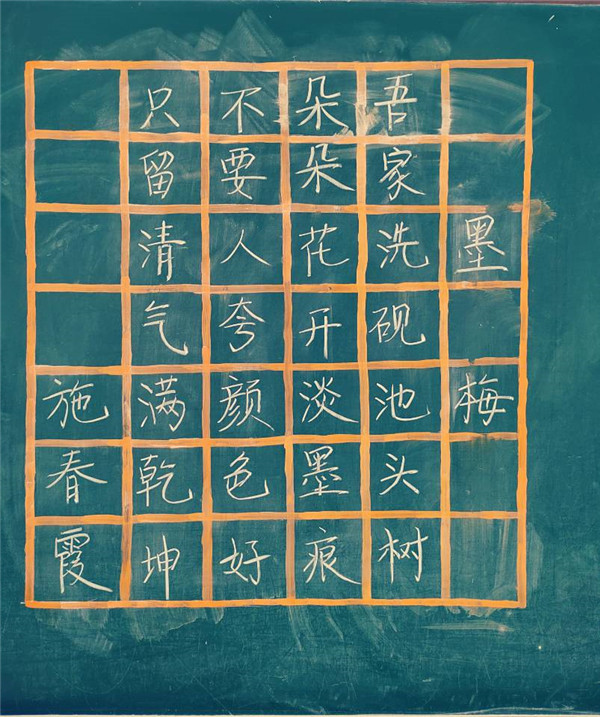 墨梅
吾家洗砚池头树
朵朵花开淡墨痕
不要人夸颜色好
只留清气满乾坤
施春霞